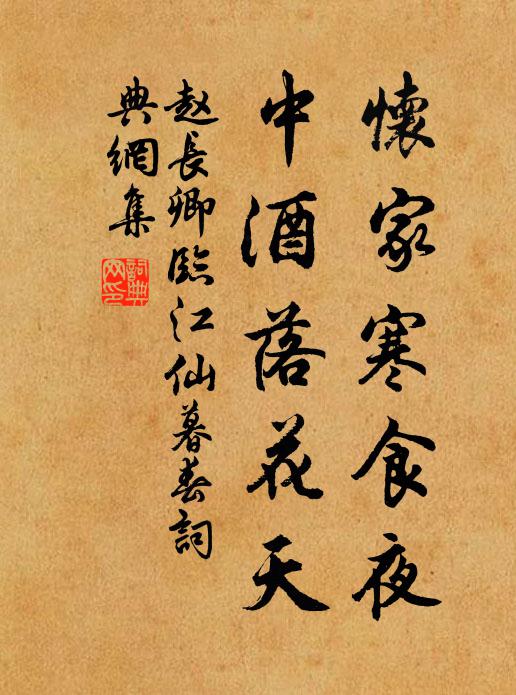 懷家寒食夜
中酒落花天
趙長卿臨江仙暮春詞
典網集
詞典網印